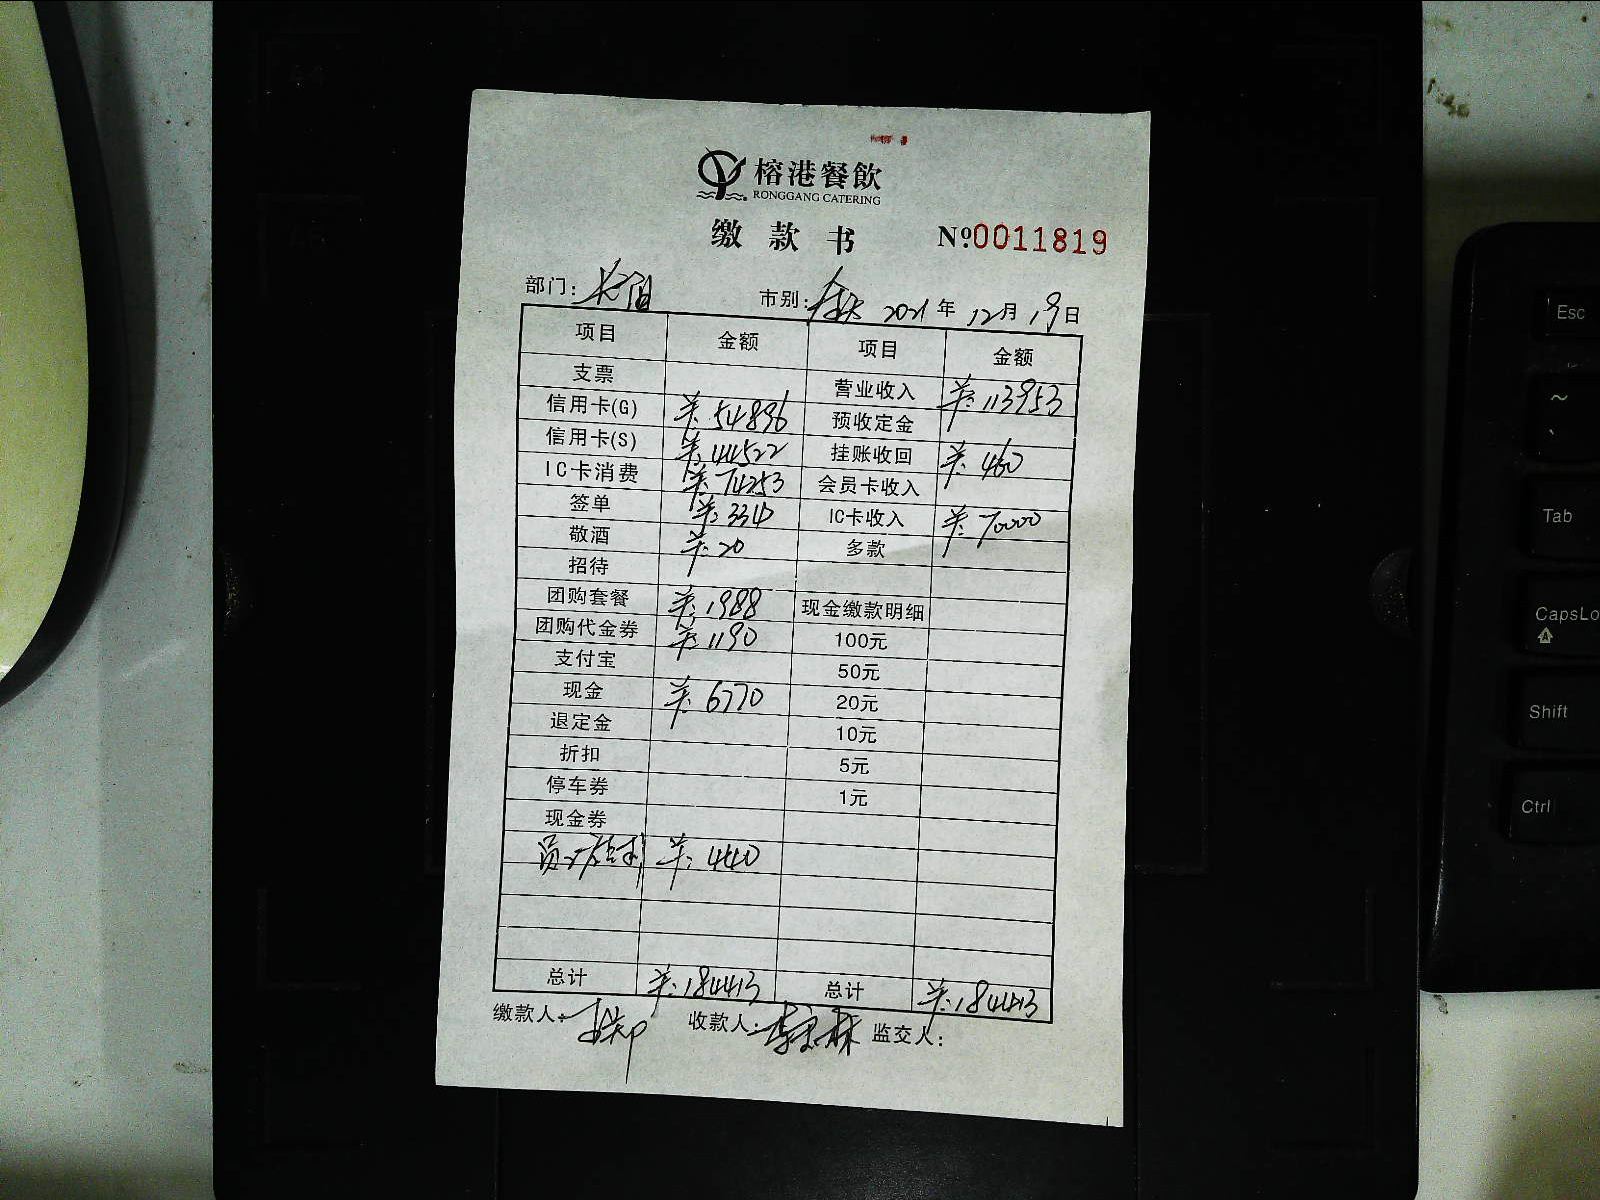 榕港餐飲
RONGGANG CATERING
缴款书 Nº0011819
部门: 市别:全天 2021年12月19日
项目 金额 项目 金额
支票 营业收入 ¥:113953
信用卡(G) ¥:54896 预收定金
信用卡(S) ¥:44522 挂账收回 ¥:460
IC卡消费 ¥:74253 会员卡收入
签单 ¥:334 IC卡收入 ¥:70000
敬酒 ¥:20 多款
招待
团购套餐 ¥:1988 现金缴款明细
团购代金券 ¥:1190 100元
支付宝 50元
现金 ¥:6770 20元
退定金 10元
折扣 5元
停车券 1元
现金券
¥:440
总计 ¥:184413 总计 ¥:184413
缴款人: 收款人: 监交人:
Esc
~
Tab
CapsLo
Shift
Ctrl